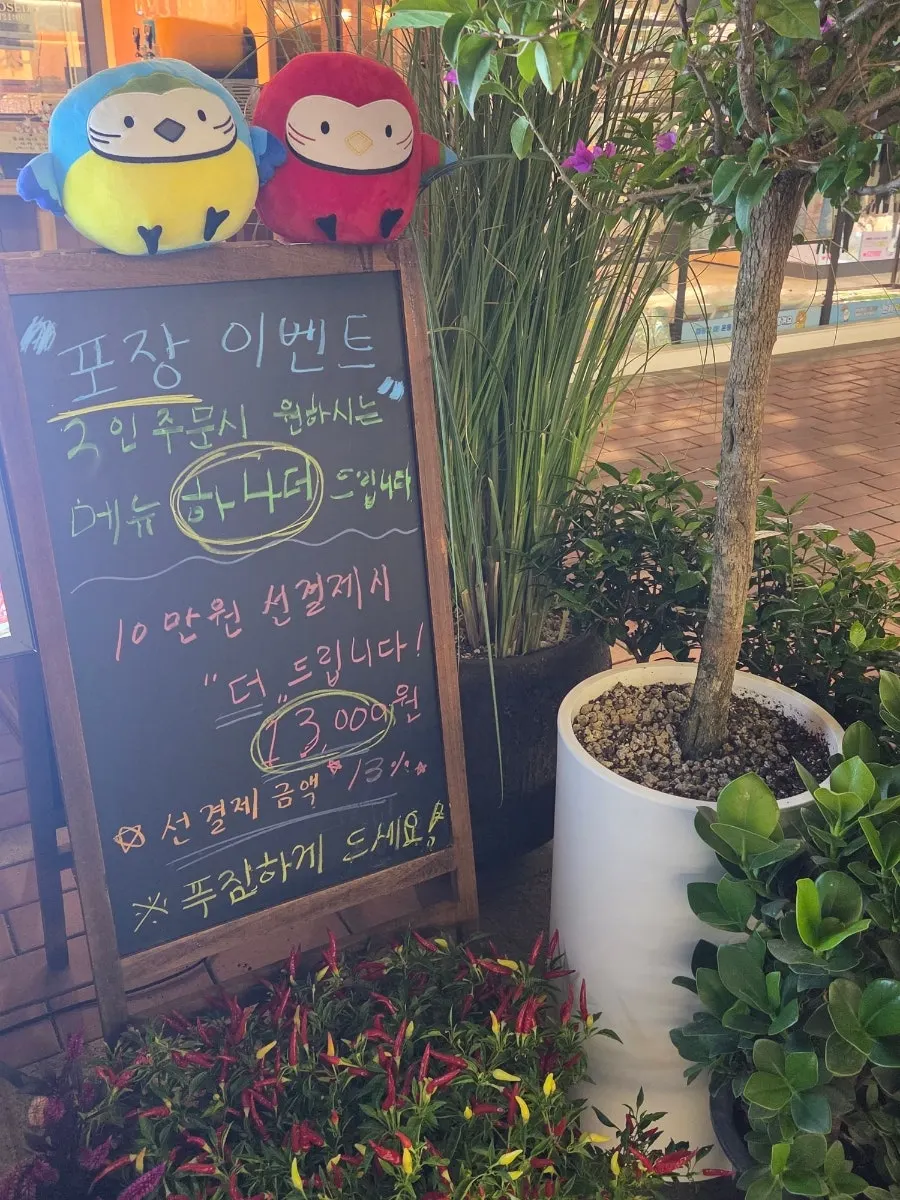 "포장 이벤트"
2인 주문시 원하시는
메뉴 하나더 드립니다
10만원 선결제시
"더" 드립니다!
13,000원
☆ 선결제 금액 *13%*
※ 푸짐하게 드세요!